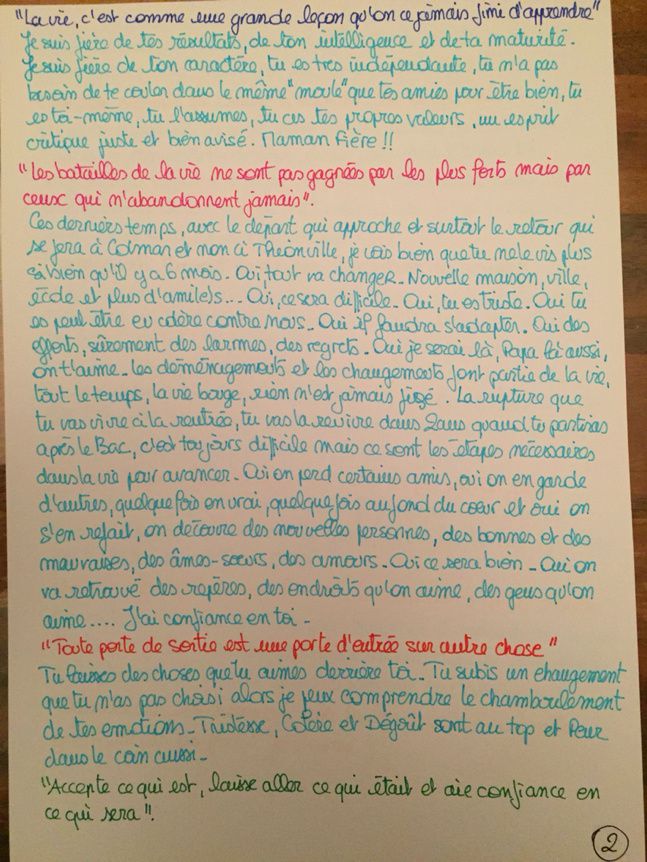 "La vie, c'est comme une grande leçon qu'on ce jamais fini d'apprendre"
Je suis fière de tes résultats, de ton intelligence et de ta maturité.
Je suis fière de ton caractère, tu es très indépendante, tu n'a pas
besoin de te couler dans le même "moule" que tes amies pour être bien, tu
es toi-même, tu l'assumes, tu as tes propres valeurs, un esprit
critique juste et bien avisé. Maman Fière !!
"Les batailles de la vie ne sont pas gagnées par les plus forts mais par
ceux qui n'abandonnent jamais".
Ces derniers temps, avec le départ qui approche et surtout le retour qui
se fera à Colmar et non à Thionville, je vois bien que tu ne le vis plus
si bien qu'il y a 6 mois. Oui tout va changer. Nouvelle maison, ville,
école et plus d'ami(e)s... Oui, ce sera difficile. Oui, tu es triste. Oui tu
es peut être en colère contre nous. Oui il faudra s'adapter. Oui des
efforts, sûrement des larmes, des regrets. Oui je serai là, Papa là aussi,
on t'aime. Les déménagements et les changements font partie de la vie,
tout le temps, la vie bouge, rien n'est jamais figé. La rupture que
tu vas vivre à la rentrée, tu vas la revivre dans 2ans quand tu partiras
après le Bac, c'est toujours difficile mais ce sont les étapes nécessaires
dans la vie pour avancer. Oui on perd certains amis, oui on en garde
d'autres, quelque fois en vrai, quelque fois au fond du coeur et oui on
s'en refait, on découvre des nouvelles personnes, des bonnes et des
mauvaises, des âmes-soeurs, des amours. Oui ce sera bien. Oui on
va retrouvé des repères, des endroits qu'on aime, des gens qu'on
aime.... J'ai confiance en toi.
"Toute porte de sortie est une porte d'entrée sur autre chose"
Tu laisses des choses que tu aimes derrière toi.. Tu subis un changement
que tu n'as pas choisi alors je peux comprendre le chamboulement
de tes émotions. Tristesse, Colère et Dégoût sont au top et Peur
dans le coin aussi.
"Accepte ce qui est, laisse aller ce qui était et aie confiance en
ce qui sera".
2